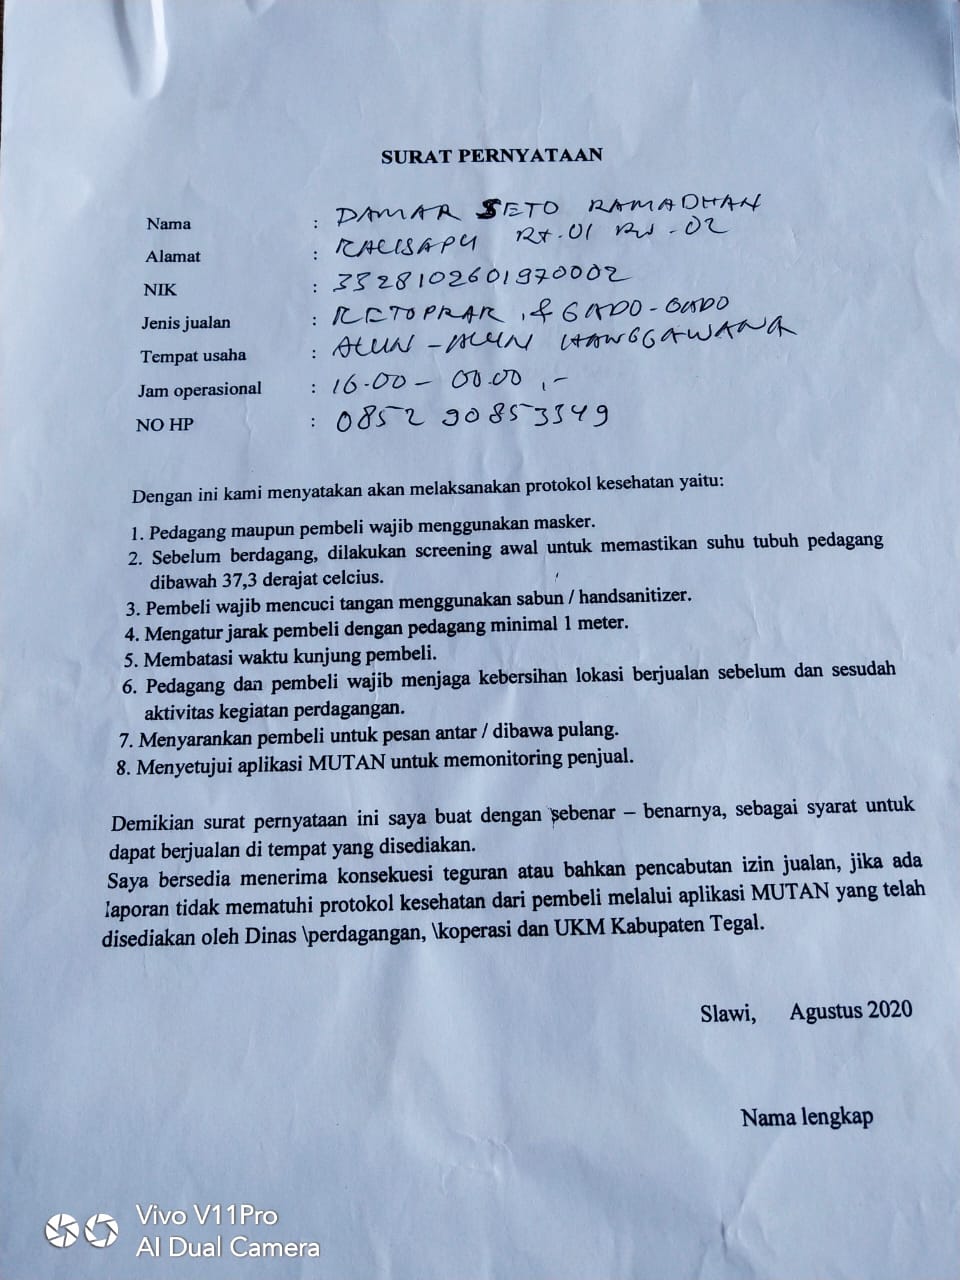 SURAT PERNYATAAN
Nama : DAMAR SETO RAMADHAN
Alamat : KALISAPU Rt.01 RW-02
NIK : 3328102601970002
Jenis jualan : KETOPRAK , & GADO-GADO
Tempat usaha : ALUN-ALUN HANGGAWANA
Jam operasional : 16.00 - 00.00 ,-
NO HP : 0852 90853349
Dengan ini kami menyatakan akan melaksanakan protokol kesehatan yaitu:
1. Pedagang maupun pembeli wajib menggunakan masker.
2. Sebelum berdagang, dilakukan screening awal untuk memastikan suhu tubuh pedagang
dibawah 37,3 derajat celcius.
3. Pembeli wajib mencuci tangan menggunakan sabun / handsanitizer.
4. Mengatur jarak pembeli dengan pedagang minimal 1 meter.
5. Membatasi waktu kunjung pembeli.
6. Pedagang dan pembeli wajib menjaga kebersihan lokasi berjualan sebelum dan sesudah
aktivitas kegiatan perdagangan.
7. Menyarankan pembeli untuk pesan antar / dibawa pulang.
8. Menyetujui aplikasi MUTAN untuk memonitoring penjual.
Demikian surat pernyataan ini saya buat dengan sebenar – benarnya, sebagai syarat untuk
dapat berjualan di tempat yang disediakan.
Saya bersedia menerima konsekuesi teguran atau bahkan pencabutan izin jualan, jika ada
laporan tidak mematuhi protokol kesehatan dari pembeli melalui aplikasi MUTAN yang telah
disediakan oleh Dinas \perdagangan, \koperasi dan UKM Kabupaten Tegal.
Slawi, Agustus 2020
Nama lengkap
Vivo V11Pro
AI Dual Camera